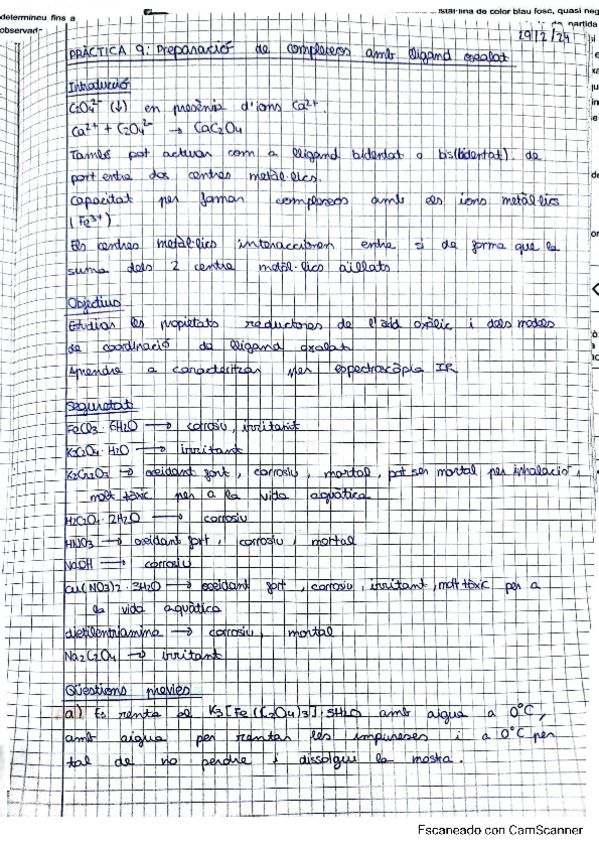 determineu fins a
observad
istal·lina de color blau fosc, quasi neg
partida
29/2/24
PRÀCTICA 9: Preparació de complexos amb lligand oxalat
Introducció
C2O4²⁻ (↓) en presència d'ions Ca²⁺.
Ca²⁺ + C2O4²⁻ → CaC2O4
També pot actuar com a lligand bidentat o bis(bidentat). de
pont entre dos centres metàl·lics.
Capacitat per formar complexos amb els ions metàl·lics
(Fe³⁺)
Els centres metàl·lics interaccionen entre si de forma que la
suma dels 2 centre metàl·lics aïllats.
Objectius
Estudiar les propietats reductores de l'àcid oxàlic i dels modes
de coordinació del lligand oxalat
Aprendre a caracteritzar per espectroscòpia IR
Seguretat
FeCl3 · 6H2O → corrosiu, irritant
K2C2O4 · H2O → irritant
K2Cr2O7 → oxidant fort, corrosiu, mortal, pot ser mortal per inhalació,
molt tòxic per a la vida aquàtica
H2C2O4 · 2H2O → corrosiu
HNO3 → oxidant fort, corrosiu, mortal
NaOH → corrosiu
Cu(NO3)2 · 3H2O → oxidant fort, corrosiu, irritant, molt tòxic per a
la vida aquàtica
dietilentriamina → corrosiu, mortal
Na2C2O4 → irritant
Qüestions prèvies
a) Es renta el K3[Fe(C2O4)3]·3H2O amb aigua a 0°C,
amb aigua per rentar les impureses i a 0°C per
tal de no perdre i dissolgui la mostra.
Escaneado con CamScanner